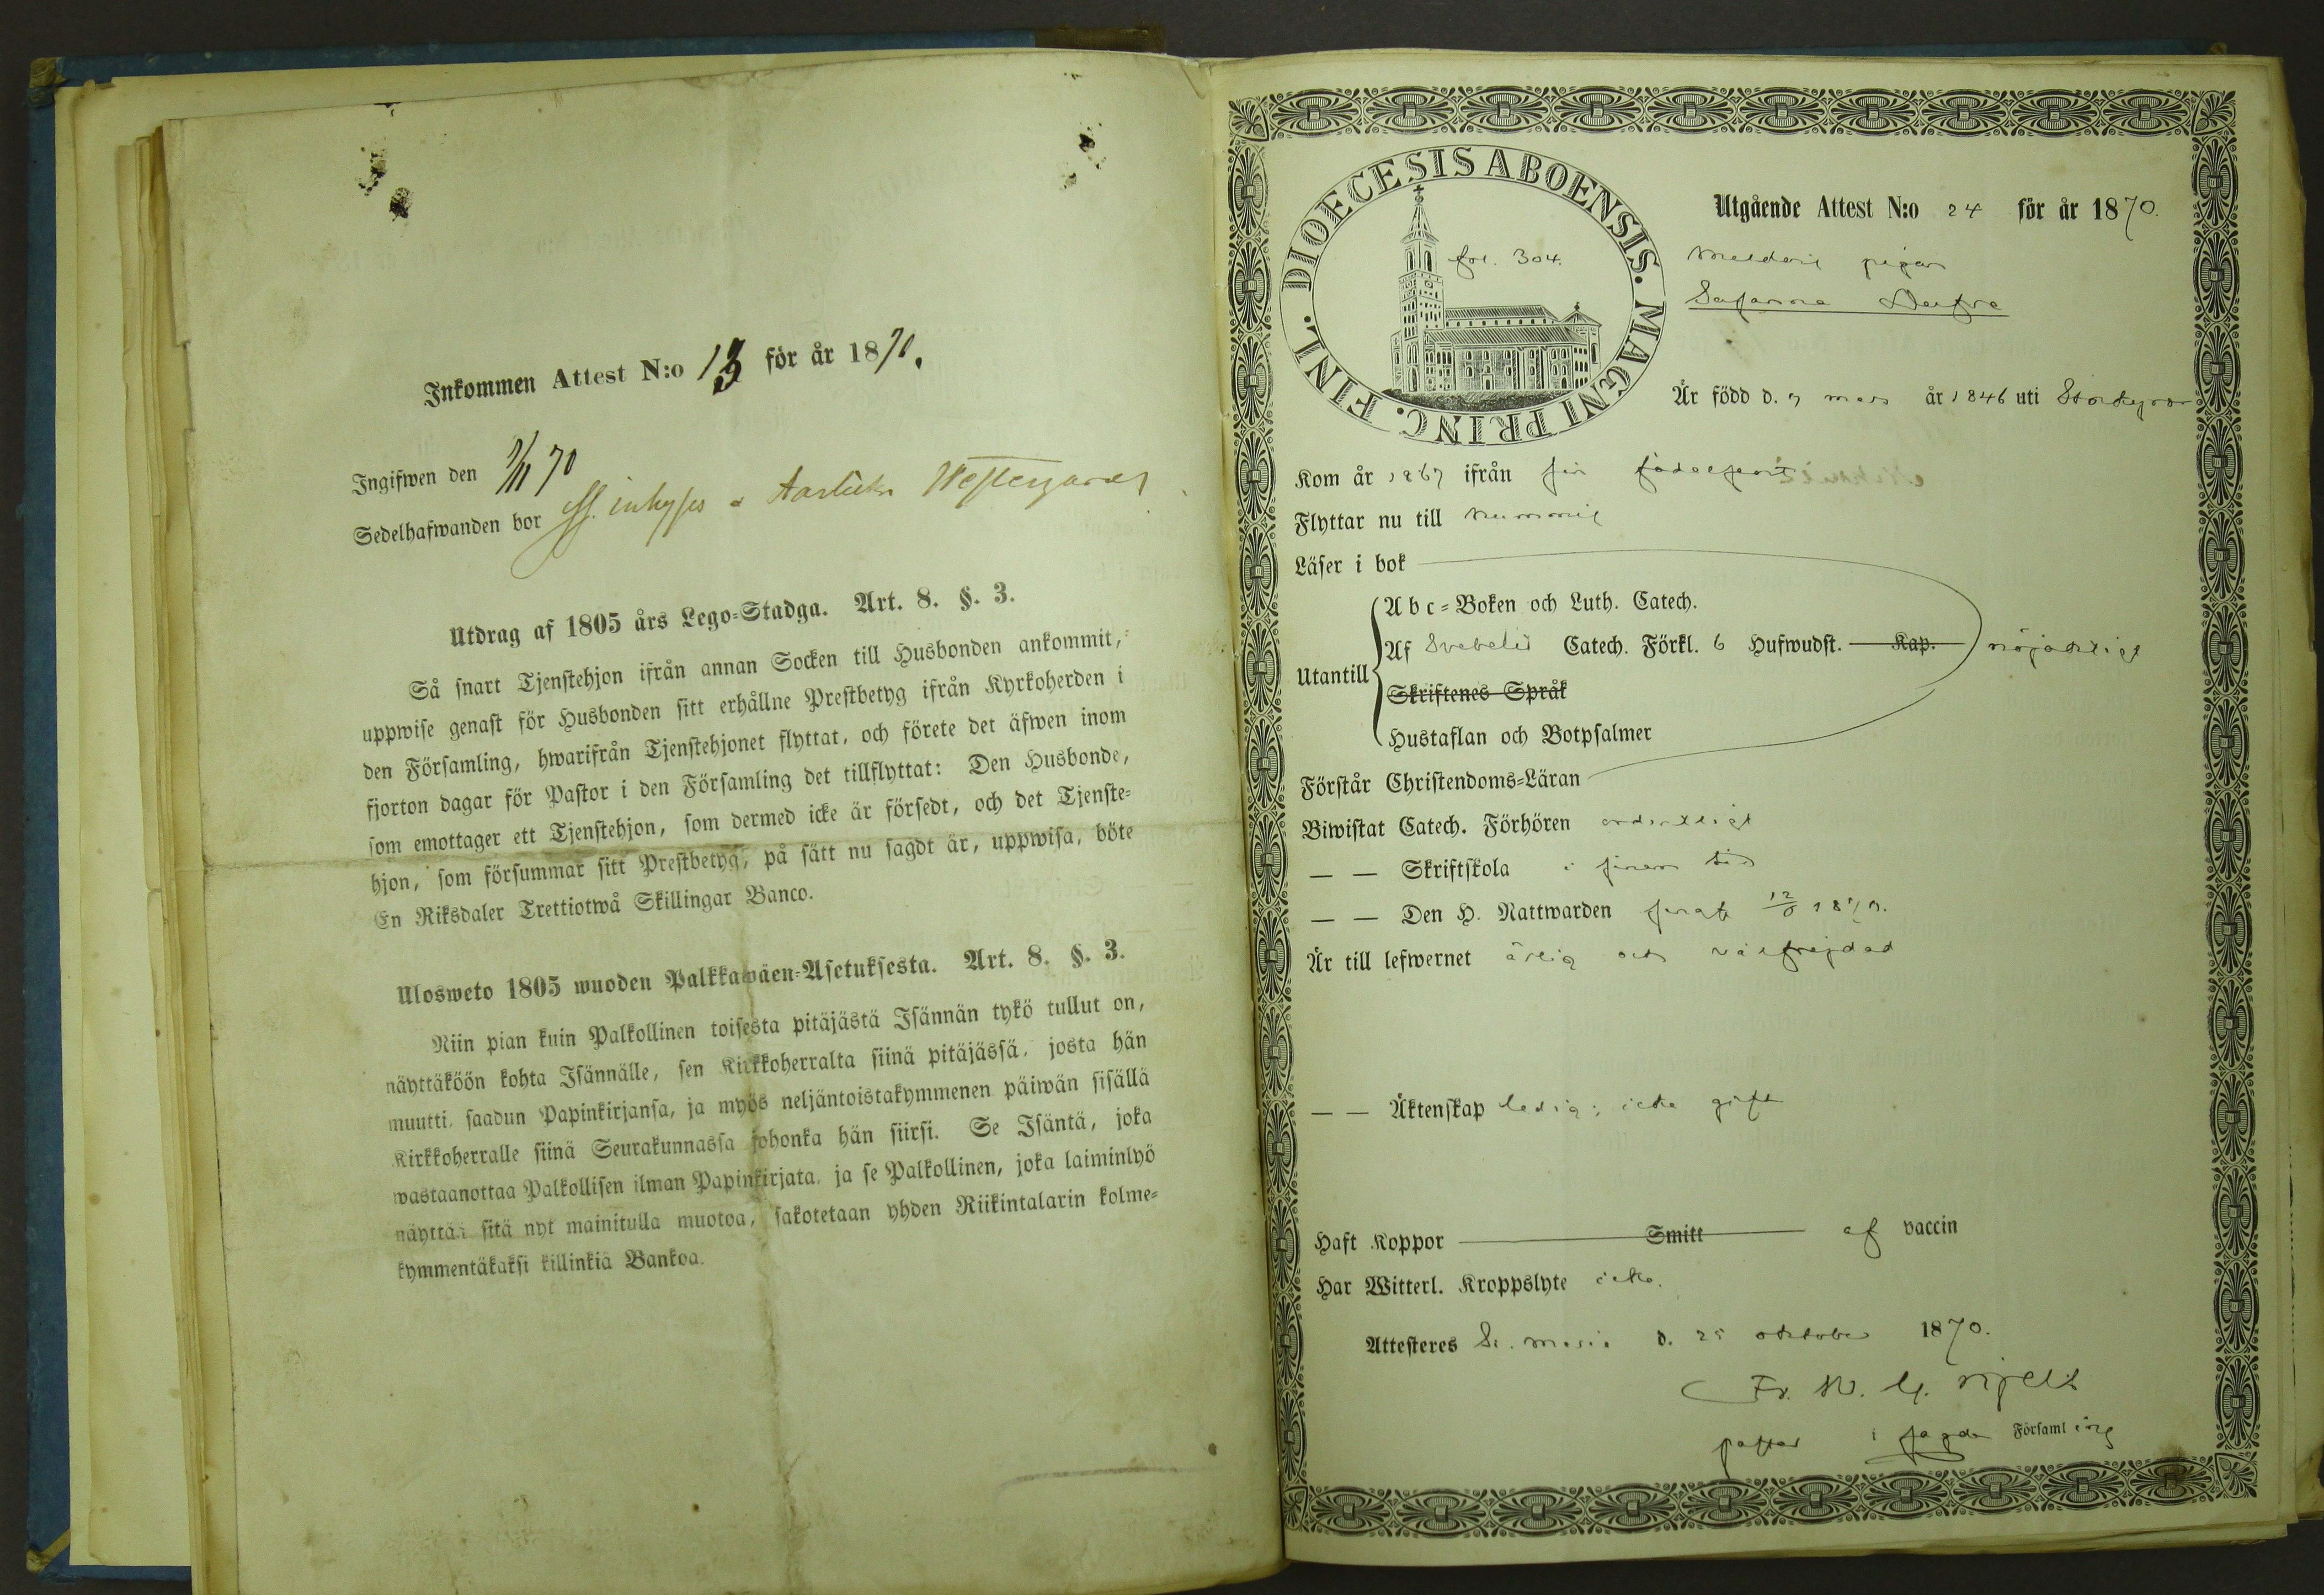 Inkommen Attest N:o 13 för år 1870.
Ingifwen den 1/11 70
Sedelhafwanden bor inhyses
Utdrag af 1805 års Lego-Stadga. Art. 8. §. 3.
Så snart Tjenstehjon ifrån annan Socken till Husbonden ankommit,
uppwise genast för Husbonden sitt erhållne Prestbetyg ifrån Kyrkoherden i
den Församling, hwarifrån Tjenstehjonet flyttat, och förete det äfwen inom
fjorton dagar för Pastor i den Församling det tillflyttat: Den Husbonde,
som emottager ett Tjenstehjon, som dermed icke är försedt, och det Tjenste-
hjon, som försummar sitt Prestbetyg, på sätt nu sagdt är, uppwisa, böte
En Riksdaler Trettiotwå Skillingar Banco.
Ulosweto 1805 wuoden Palkkawäen-Asetuksesta. Art. 8. §. 3.
Niin pian kuin Palkollinen toisesta pitäjästä Isännän tykö tullut on,
näyttäköön kohta Isännälle, sen Kirkkoherralta siinä pitäjässä, josta hän
muutti, saadun Papinkirjansa, ja myös neljäntoistakymmenen päiwän sisällä
Kirkkoherralle siinä Seurakunnassa johonka hän siirsi. Se Isäntä, joka
wastaanottaa Palkollisen ilman Papinkirjata, ja se Palkollinen, joka laiminlyö
näyttää sitä nyt mainitulla muotoa, sakotetaan yhden Riikintalarin kolme-
kymmentäkaksi killinkiä Bankoa.
DIOECESIS ABOENSIS. MAGNI PRINC. FINL.
fol. 304.
Utgående Attest N:o 24 för år 1870.
pigan
Är född d. 7 mars år 1846 uti Storkyro
Kom år 1867 ifrån sin födelseort
Flyttar nu till Nummis
Läser i bok
Abc-Boken och Luth. Catech.
Utantill Af Svebelii Catech. Förkl. 6 Hufwudst. Kap. nöjaktligt
Skriftenes Språk
Hustaflan och Botpsalmer
Förstår Christendoms-Läran
Biwistat Catech. Förhören ordentligt
— — Skriftskola i sinom tid
— — Den H. Nattwarden senast
Är till lefwernet ärlig och välfrejdad
— — Äktenskap ledig; icke gift
Haft Koppor Smitt af vaccin
Har Witterl. Kroppslyte icke.
Attesteres St. Marie d. 25 oktober 1870.
Fr. W. G. Hjelt
pastor i sagde Församling